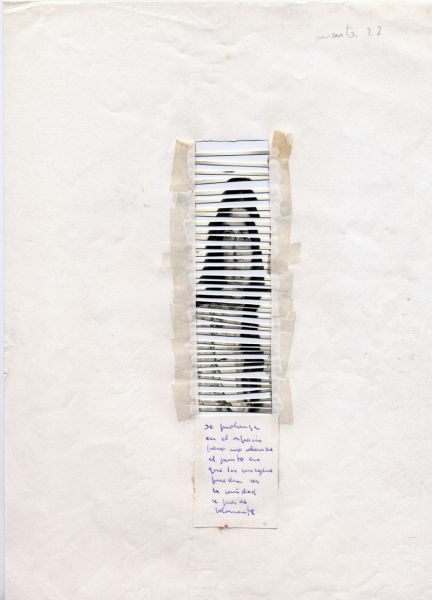 martes 27
se prolonga
en el espacio
pero no alcanza
el punto en
que los
pueden ser
la unidad
se
solamente